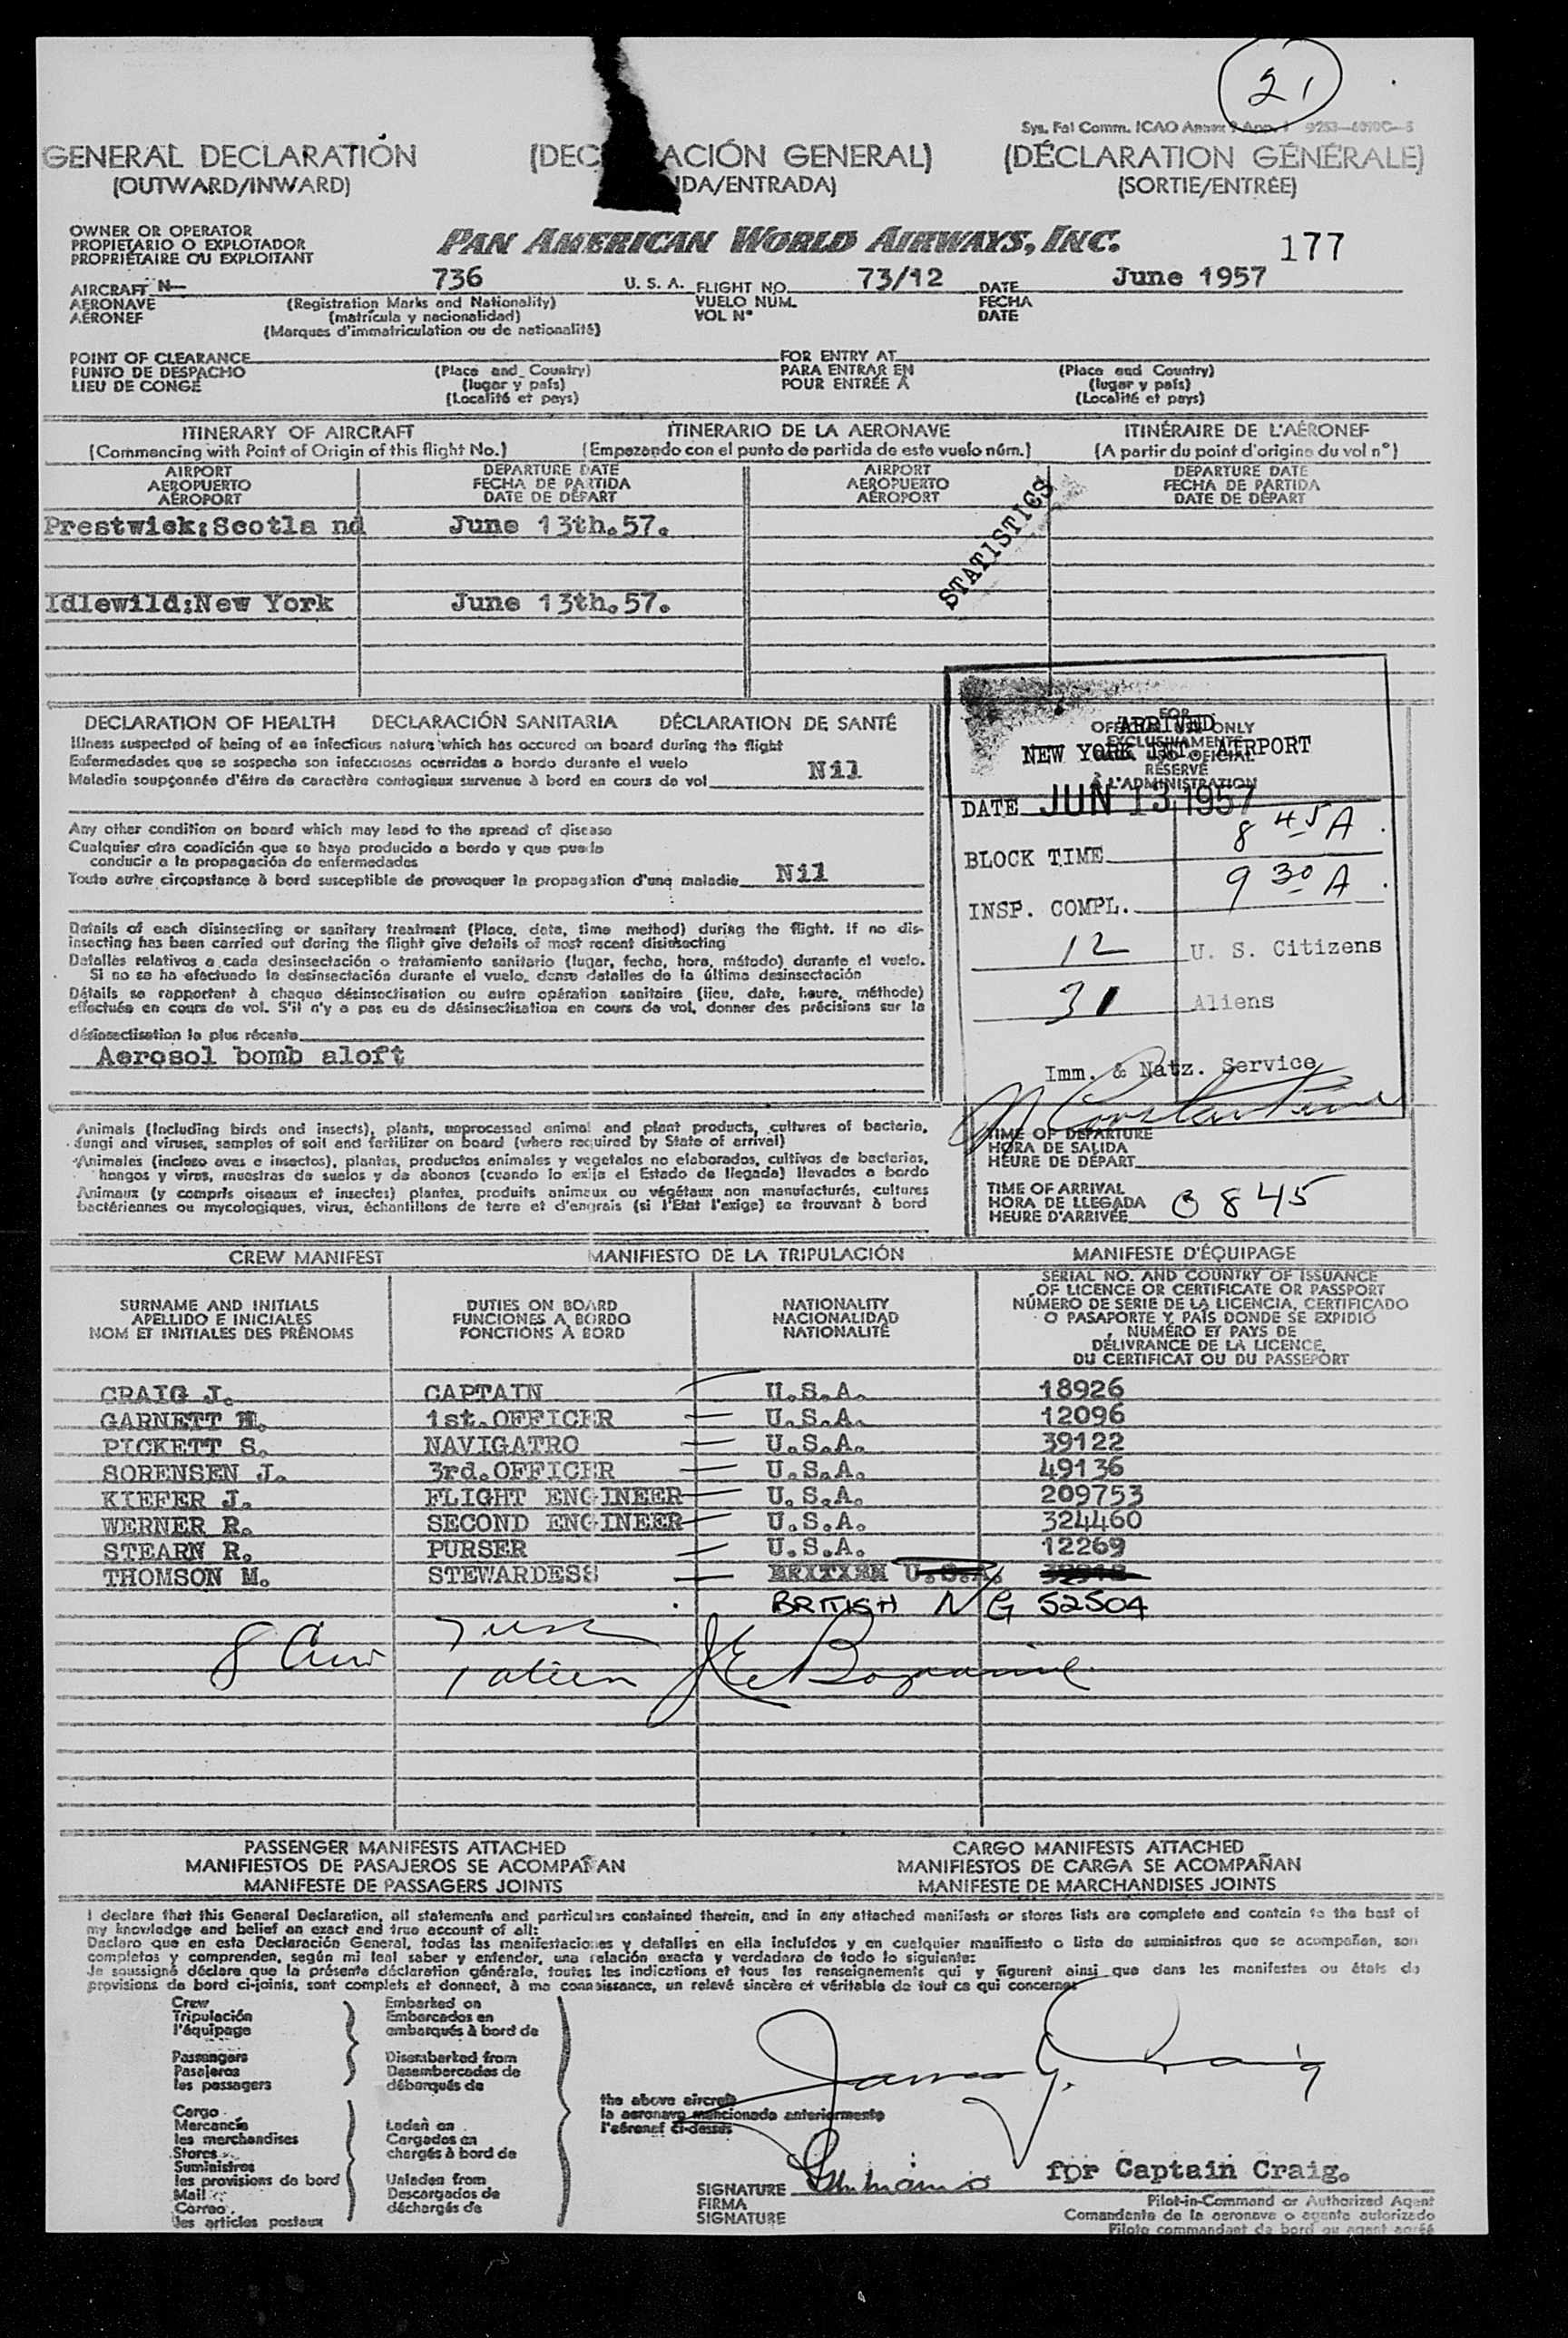 21
Sys. Fal Comm. ICAO Annex 9 App. 1
GENERAL DECLARATION (DEC ACIÓN GENERAL) (DÉCLARATION GÉNÉRALE)
(OUTWARD/INWARD) IDA/ENTRADA) (SORTIE/ENTRÉE)
OWNER OR OPERATOR
PROPIETARIO O EXPLOTADOR
PROPRIÉTAIRE OU EXPLOITANT
PAN AMERICAN WORLD AIRWAYS, INC. 177
AIRCRAFT N- 736 U. S. A. FLIGHT NO. 73/12 DATE June 1957
AERONAVE (Registration Marks and Nationality) VUELO NÚM. FECHA
AÉRONEF (matrícula y nacionalidad) VOL N° DATE
(Marques d'immatriculation ou de nationalité)
POINT OF CLEARANCE FOR ENTRY AT
PUNTO DE DESPACHO (Place and Country) PARA ENTRAR EN (Place and Country)
LIEU DE CONGÉ (lugar y país) POUR ENTRÉE À (lugar y país)
(Localité et pays) (Localité et pays)
ITINERARY OF AIRCRAFT ITINERARIO DE LA AERONAVE ITINÉRAIRE DE L'AÉRONEF
(Commencing with Point of Origin of this flight No.) (Empezando con el punto de partida de este vuelo núm.) (A partir du point d'origine du vol n°)
AIRPORT DEPARTURE DATE AIRPORT DEPARTURE DATE
AEROPUERTO FECHA DE PARTIDA AEROPUERTO FECHA DE PARTIDA
AÉROPORT DATE DE DÉPART AÉROPORT DATE DE DÉPART
Prestwick;Scotla nd June 13th.57.
STATISTICS
Idlewild;New York June 13th.57.
DECLARATION OF HEALTH DECLARACIÓN SANITARIA DÉCLARATION DE SANTÉ
Illness suspected of being of an infectious nature which has occured on board during the flight
Enfermedades que se sospecha son infecciosas ocurridas a bordo durante el vuelo
Maladie soupçonnée d'être de caractère contagieux survenue à bord en cours de vol Nil
Any other condition on board which may lead to the spread of disease
Cualquier otra condición que se haya producido a bordo y que pueda
conducir a la propagación de enfermedades
Toute autre circonstance à bord susceptible de provoquer la propagation d'une maladie Nil
Details of each disinsecting or sanitary treatment (Place, date, time method) during the flight. If no dis-
insecting has been carried out during the flight give details of most recent disinsecting
Detalles relativos a cada desinsectación o tratamiento sanitario (lugar, fecha, hora, método) durante el vuelo.
Si no se ha efectuado la desinsectación durante el vuelo, dense detalles de la última desinsectación
Détails se rapportent à chaque désinsectisation ou autre opération sanitaire (lieu, date, heure, méthode)
effectuée en cours de vol. S'il n'y a pas eu de désinsectisation en cours de vol, donner des précisions sur la
désinsectisation la plus récente
Aerosol bomb aloft
FOR
OFFICIAL USE ONLY
EXCLUSIVAMENTE
RÉSERVÉ
À L'ADMINISTRATION
ARRIVED
NEW YORK INT. AIRPORT
DATE JUN 13 1957
BLOCK TIME 8 45 A
INSP. COMPL. 9 30 A
12 U. S. Citizens
31 Aliens
Imm. & Natz. Service
Animals (including birds and insects), plants, unprocessed animal and plant products, cultures of bacteria,
fungi and viruses, samples of soil and fertilizer on board (where required by State of arrival)
Animales (incluso aves e insectos), plantas, productos animales y vegetales no elaborados, cultivos de bacterias,
hongos y virus, muestras de suelos y de abonos (cuando lo exija el Estado de llegada) llevados a bordo
Animaux (y compris oiseaux et insectes) plantes, produits animaux ou végétaux non manufacturés, cultures
bactériennes ou mycologiques, virus, échantillons de terre et d'engrais (si l'État l'exige) se trouvant à bord
TIME OF DEPARTURE
HORA DE SALIDA
HEURE DE DÉPART
TIME OF ARRIVAL
HORA DE LLEGADA
HEURE D'ARRIVÉE 0845
CREW MANIFEST MANIFIESTO DE LA TRIPULACIÓN MANIFESTE D'ÉQUIPAGE
SURNAME AND INITIALS
APELLIDO E INICIALES
NOM ET INITIALES DES PRÉNOMS
DUTIES ON BOARD
FUNCIONES A BORDO
FONCTIONS À BORD
NATIONALITY
NACIONALIDAD
NATIONALITÉ
SERIAL NO. AND COUNTRY OF ISSUANCE
OF LICENCE OR CERTIFICATE OR PASSPORT
NÚMERO DE SERIE DE LA LICENCIA, CERTIFICADO
O PASAPORTE Y PAÍS DONDE SE EXPIDIÓ
NUMÉRO ET PAYS DE
DÉLIVRANCE DE LA LICENCE,
DU CERTIFICAT OU DU PASSEPORT
CRAIG J. CAPTAIN U.S.A. 18926
GARNETT H. 1st.OFFICER U.S.A. 12096
PICKETT S. NAVIGATRO U.S.A. 39122
SORENSEN J. 3rd.OFFICER U.S.A. 49136
KIEFER J. FLIGHT ENGINEER U.S.A. 209753
WERNER R. SECOND ENGINEER U.S.A. 324460
STEARN R. PURSER U.S.A. 12269
THOMSON M. STEWARDESS U.S.A.
BRITISH N/G 52504
8 Crew 7 usc
1 alien
PASSENGER MANIFESTS ATTACHED CARGO MANIFESTS ATTACHED
MANIFIESTOS DE PASAJEROS SE ACOMPAÑAN MANIFIESTOS DE CARGA SE ACOMPAÑAN
MANIFESTE DE PASSAGERS JOINTS MANIFESTE DE MARCHANDISES JOINTS
I declare that this General Declaration, all statements and particulars contained therein, and in any attached manifests or stores lists are complete and contain to the best of
my knowledge and belief an exact and true account of all:
Declaro que en esta Declaración General, todas las manifestaciones y detalles en ella incluídos y en cualquier manifiesto o lista de suministros que se acompañan, son
completos y comprenden, según mi leal saber y entender, una relación exacta y verdadera de todo lo siguiente:
Je soussigné déclare que la présente déclaration générale, toutes les indications et tous les renseignements qui y figurent ainsi que dans les manifestes ou états de
provisions de bord ci-joints, sont complets et donnent, à ma connaissance, un relevé sincère et véritable de tout ce qui concerne:
Crew Embarked on
Tripulación Embarcados en
l'équipage embarqués à bord de
Passengers Disembarked from
Pasajeros Desembarcados de
les passagers débarqués de
Cargo
Mercancía Laden on
les merchandises Cargados en
Stores chargés à bord de
Suministros
les provisions de bord Unladen from
Mail Descargados de
Correo déchargés de
les articles postaux
the above aircraft
la aeronave mencionada anteriormente
l'aéronef ci-dessus
James G. Craig
for Captain Craig.
SIGNATURE
FIRMA
SIGNATURE
Pilot-in-Command or Authorized Agent
Comandante de la aeronave o agente autorizado
Pilote commandant de bord ou agent agréé